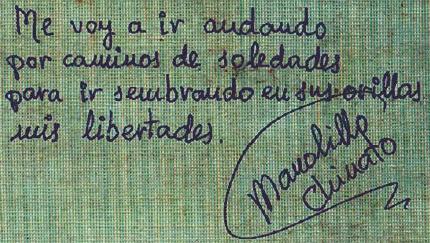 Me voy a ir andando
por caminos de soledades
para ir sembrando en sus orillas
mis libertades.
Manolillo
Chinato